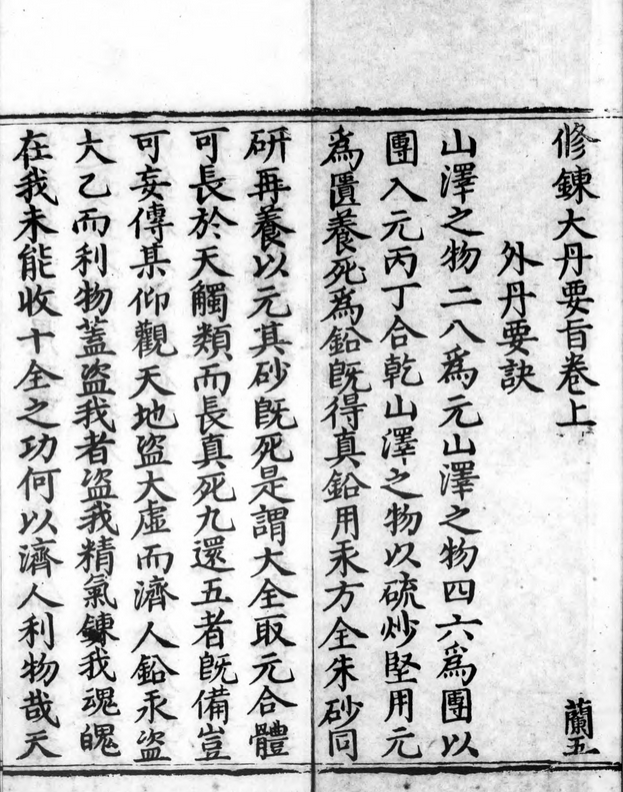 修鍊大丹要旨卷上
蘭五
外丹要訣
山澤之物二八為元山澤之物四六為團以
團入元丙丁合乾山澤之物以硫炒堅用元
為匱養死為鉛旣得真鉛用汞方全朱砂同
研再養以元其砂旣死是謂大全取元合體
可長於天觸類而長真死九還五者旣備豈
可妄傳某仰觀天地盜大虛而濟人鉛汞盜
大乙而利物蓋盜我者盜我精氣鍊我魂魄
在我未能收十全之功何以濟人利物哉天